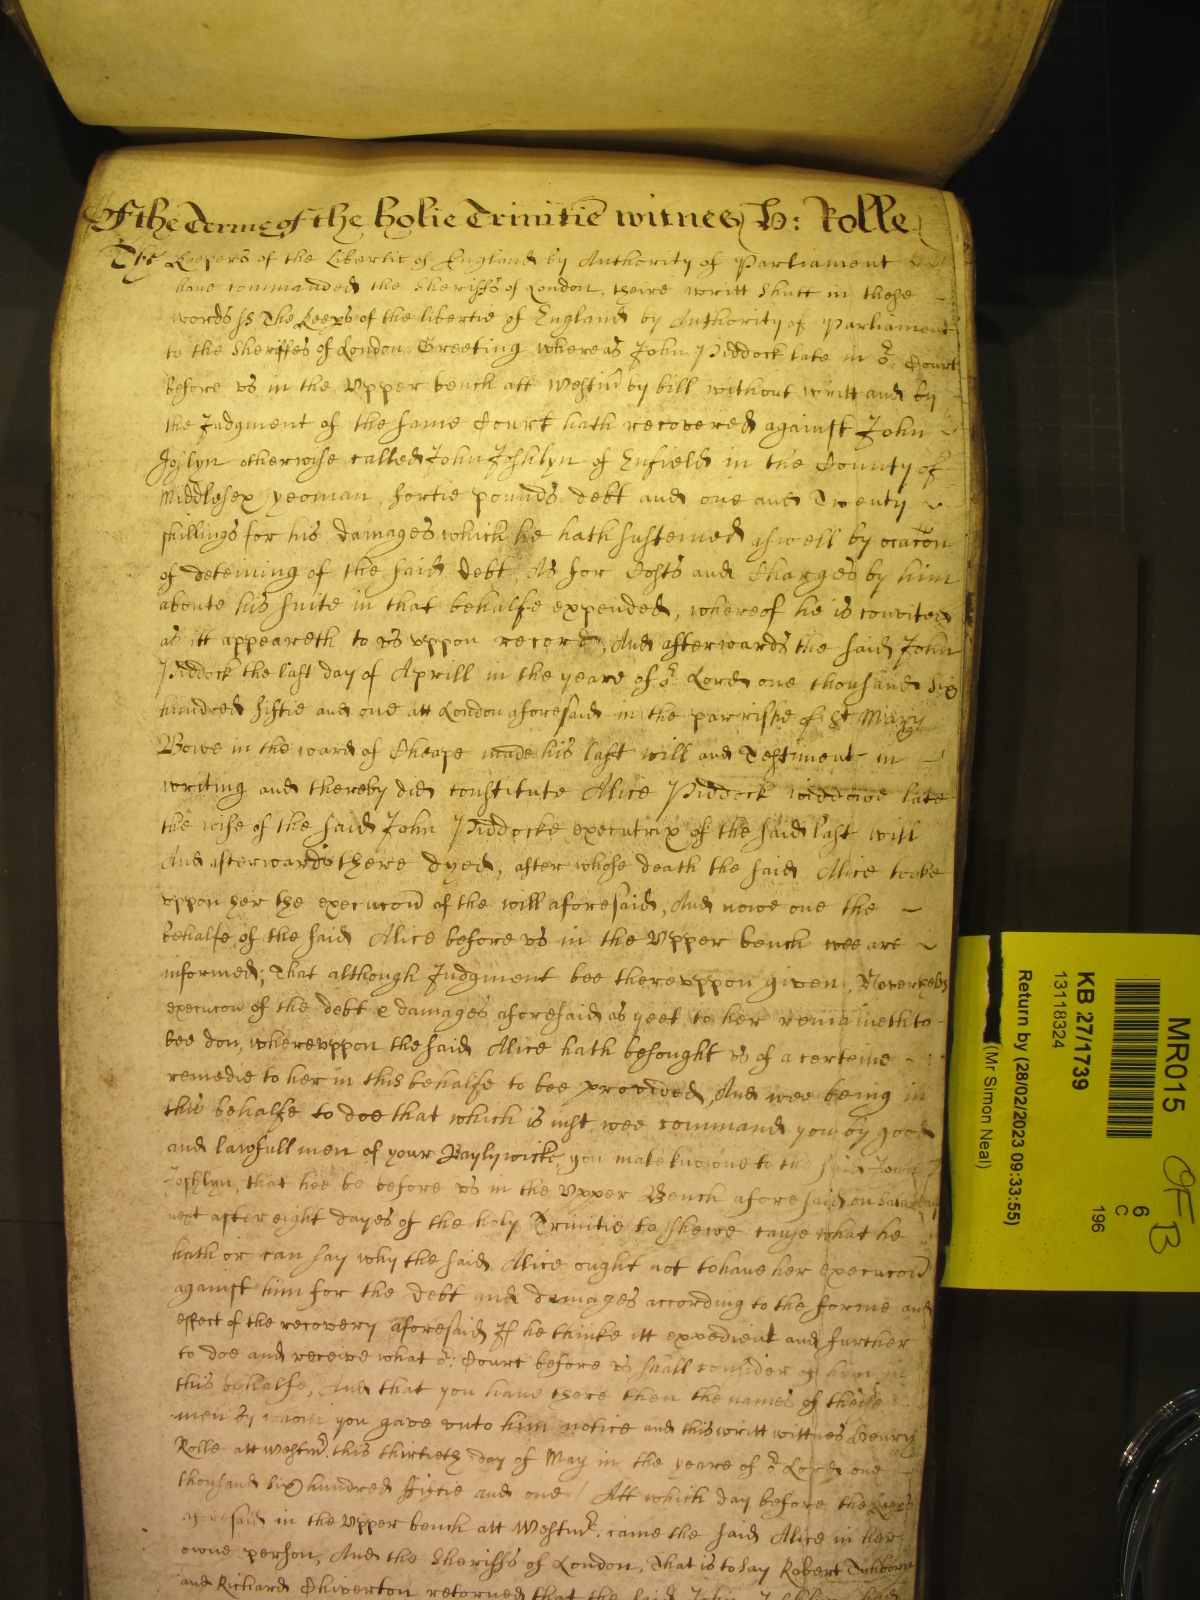 Of the Terme of the holie Trinitie witnes H: Rolle
The Keepers of the Libertie of England by Authority of Parliament
have commanded the Sheriffs of London, theire writt shutt in these
words ss The Keeps of the libertie of England by Authority of Parliament
to the Sheriffes of London Greeting whereas John Piddock late in or Court
before us in the Upper bench att Westmr by bill without writt and by
the Judgment of the same Court hath recovered against John
Joslyn otherwise called John Joshlyn of Enfield in the County of
Middlesex yeoman, fortie pounds debt and one and Twenty
shillings for his damages which he hath susteined aswell by occacon
of deteining of the said debt, As for Costs and Charges by him
aboute his suite in that behalfe expended, whereof he is convited
as itt appeareth to us uppon record, And afterwards the said John
Piddock the last day of Aprill in the yeare of or Lord one thousand six
hundred fiftie and one att London aforesaid in the parrishe of St Mary
Bowe in the ward of Cheape made his last will and Testiment in
writing and thereby did constitute Alice Piddock widdowe late
the wife of the said John Piddocke executrix of the said last will
And afterwards there dyed, after whose death the said Alice tooke
uppon her the execucon of the will aforesaid, And nowe one the
behalfe of the said Alice before us in the Upper bench wee are
informed, That although Judgment bee thereuppon given, Neverthels
execucon of the debt & damages aforesaid as yeet to her remaineth to
bee don, whereuppon the said Alice hath besought us of a certeine
remedie to her in this behalfe to bee provided, And wee being in
this behalfe to doe that which is just, wee command you by good
and lawfull men of your Baylywicke you make knowne to the said John
Joshlyn, that hee be before us in the Upper Bench aforesaid on Saturday
next after eight dayes of the holy Trinitie to shewe cause what he
hath or can say why the said Alice ought not to have her execucon
against him for the debt and damages according to the forme and
effect of the recovery aforesaid If he thinke itt expedient and further
to doe and receive what or Court before us shall consider of him in
this behalfe, And that you have there then the names of these
men by whom you gave unto him notice and this writt wittnes Henry
Rolle att Westmr this thirtieth day of May in the yeare of or Lord one
thousand six hundred fiftie and one / Att which day before the Keeps
aforesaid in the Upper bench att Westmr came the said Alice in her
owne person, And the Sheriffs of London, That is to say Robert Tichborne
and Richard Chiverton retorned that the said John
MR015
KB 27/1739
13118324
Return by (28/02/2023 09:33:55)
(Mr Simon Neal)
6
C
196